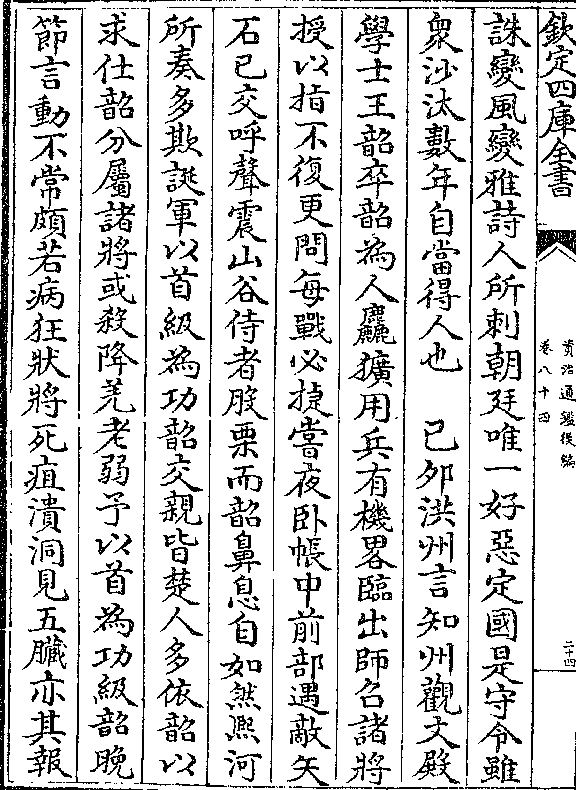 欽定四庫全書
資治通鑑後編
卷八十四
二十四
誅變風變雅詩人所刺朝廷唯一好惡定國是守令雖
衆沙汰數年自當得人也 己卯洪州言知州觀文殿
學士王韶卒韶為人麤獷用兵有機畧臨出師召諸將
授以指不復更問每戰必捷嘗夜卧帳中前部遇敵矢
石已交呼聲震山谷侍者股栗而韶鼻息自如然熈河
所奏多欺誕軍以首級為功韶交親皆楚人多依韶以
求仕韶分屬諸將或殺降羌老弱予以首為功級韶晚
節言動不常頗若病狂狀將死疽潰洞見五臟亦其報